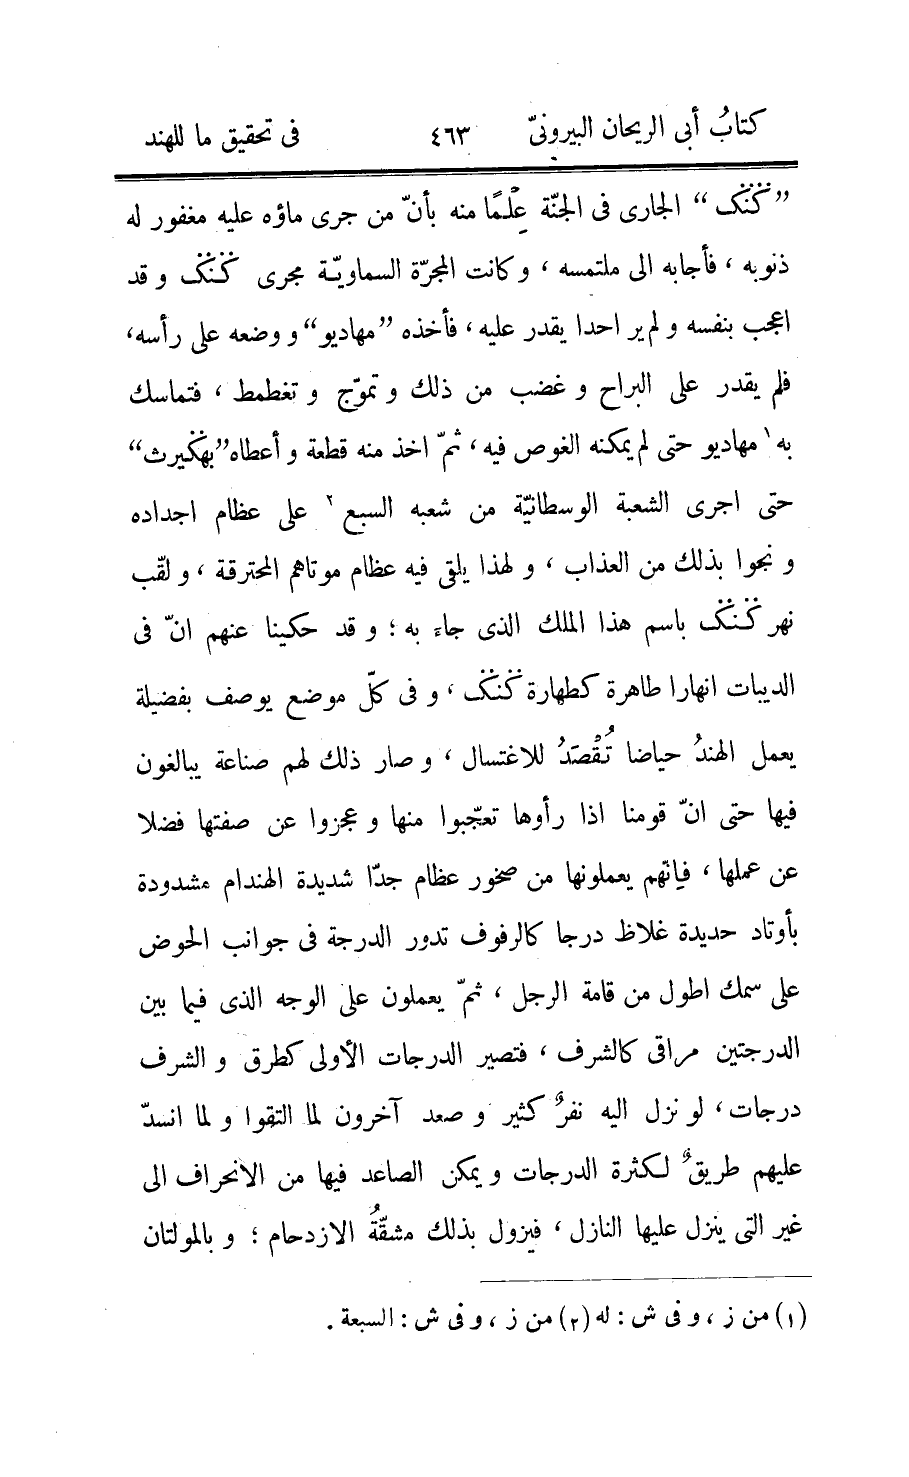 كتابُ أبى الريحان البيرونىّ ٤٦٣ فى تحقيق ما للهند
”كَنْكَ“ الجارى فى الجنّة عِلْمًا منه بأنّ من جرى ماؤه عليه مغفور له
ذنوبه ، فأجابه الى ملتمسه ، و كانت المجرّة السماويّة مجرى كَنْكَ و قد
اعجب بنفسه و لم ير احدا يقدر عليه ، فأخذه ”مهاديو“ و وضعه على رأسه،
فلم يقدر على البراح و غضب من ذلك و تموّج و تغطمط ، فتماسك
به ١ مهاديو حتى لم يمكنه الغوص فيه ، ثمّ اخذ منه قطعة و أعطاه ”بهكيرث“
حتى اجرى الشعبة الوسطانيّة من شعبه السبع ٢ على عظام اجداده
و نجوا بذلك من العذاب ، و لهذا يلقى فيه عظام موتاهم المحترقة ، و لقب
نهر كَنْكَ باسم هذا الملك الذى جاء به ؛ و قد حكينا عنهم انّ فى
الديبات انهارا طاهرة كطهارة كَنْكَ ، و فى كلّ موضع يوصف بفضيلة
يعمل الهندُ حياضا تُقْصَدُ للاغتسال ، و صار ذلك لهم صناعة يبالغون
فيها حتى انّ قومنا اذا رأوها تعجّبوا منها و عجزوا عن صفتها فضلا
عن عملها ، فإنّهم يعملونها من صخور عظام جدّا شديدة الهندام مشدودة
بأوتاد حديدة غلاظ درجا كالرفوف تدور الدرجة فى جوانب الحوض
على سمك اطول من قامة الرجل ، ثمّ يعملون على الوجه الذى فيما بين
الدرجتين مراقى كالشرف ، فتصير الدرجات الأولى كطرق و الشرف
درجات، لو نزل اليه نفرٌ كثير و صعد آخرون لما التقوا و لما انسدّ
عليهم طريقٌ لكثرة الدرجات و يمكن الصاعد فيها من الانحراف الى
غير التى ينزل عليها النازل ، فيزول بذلك مشقّةُ الازدحام ؛ و بالمولتان
(١) من ز ، و فى ش : له (٢) من ز ، و فى ش : السبعة .